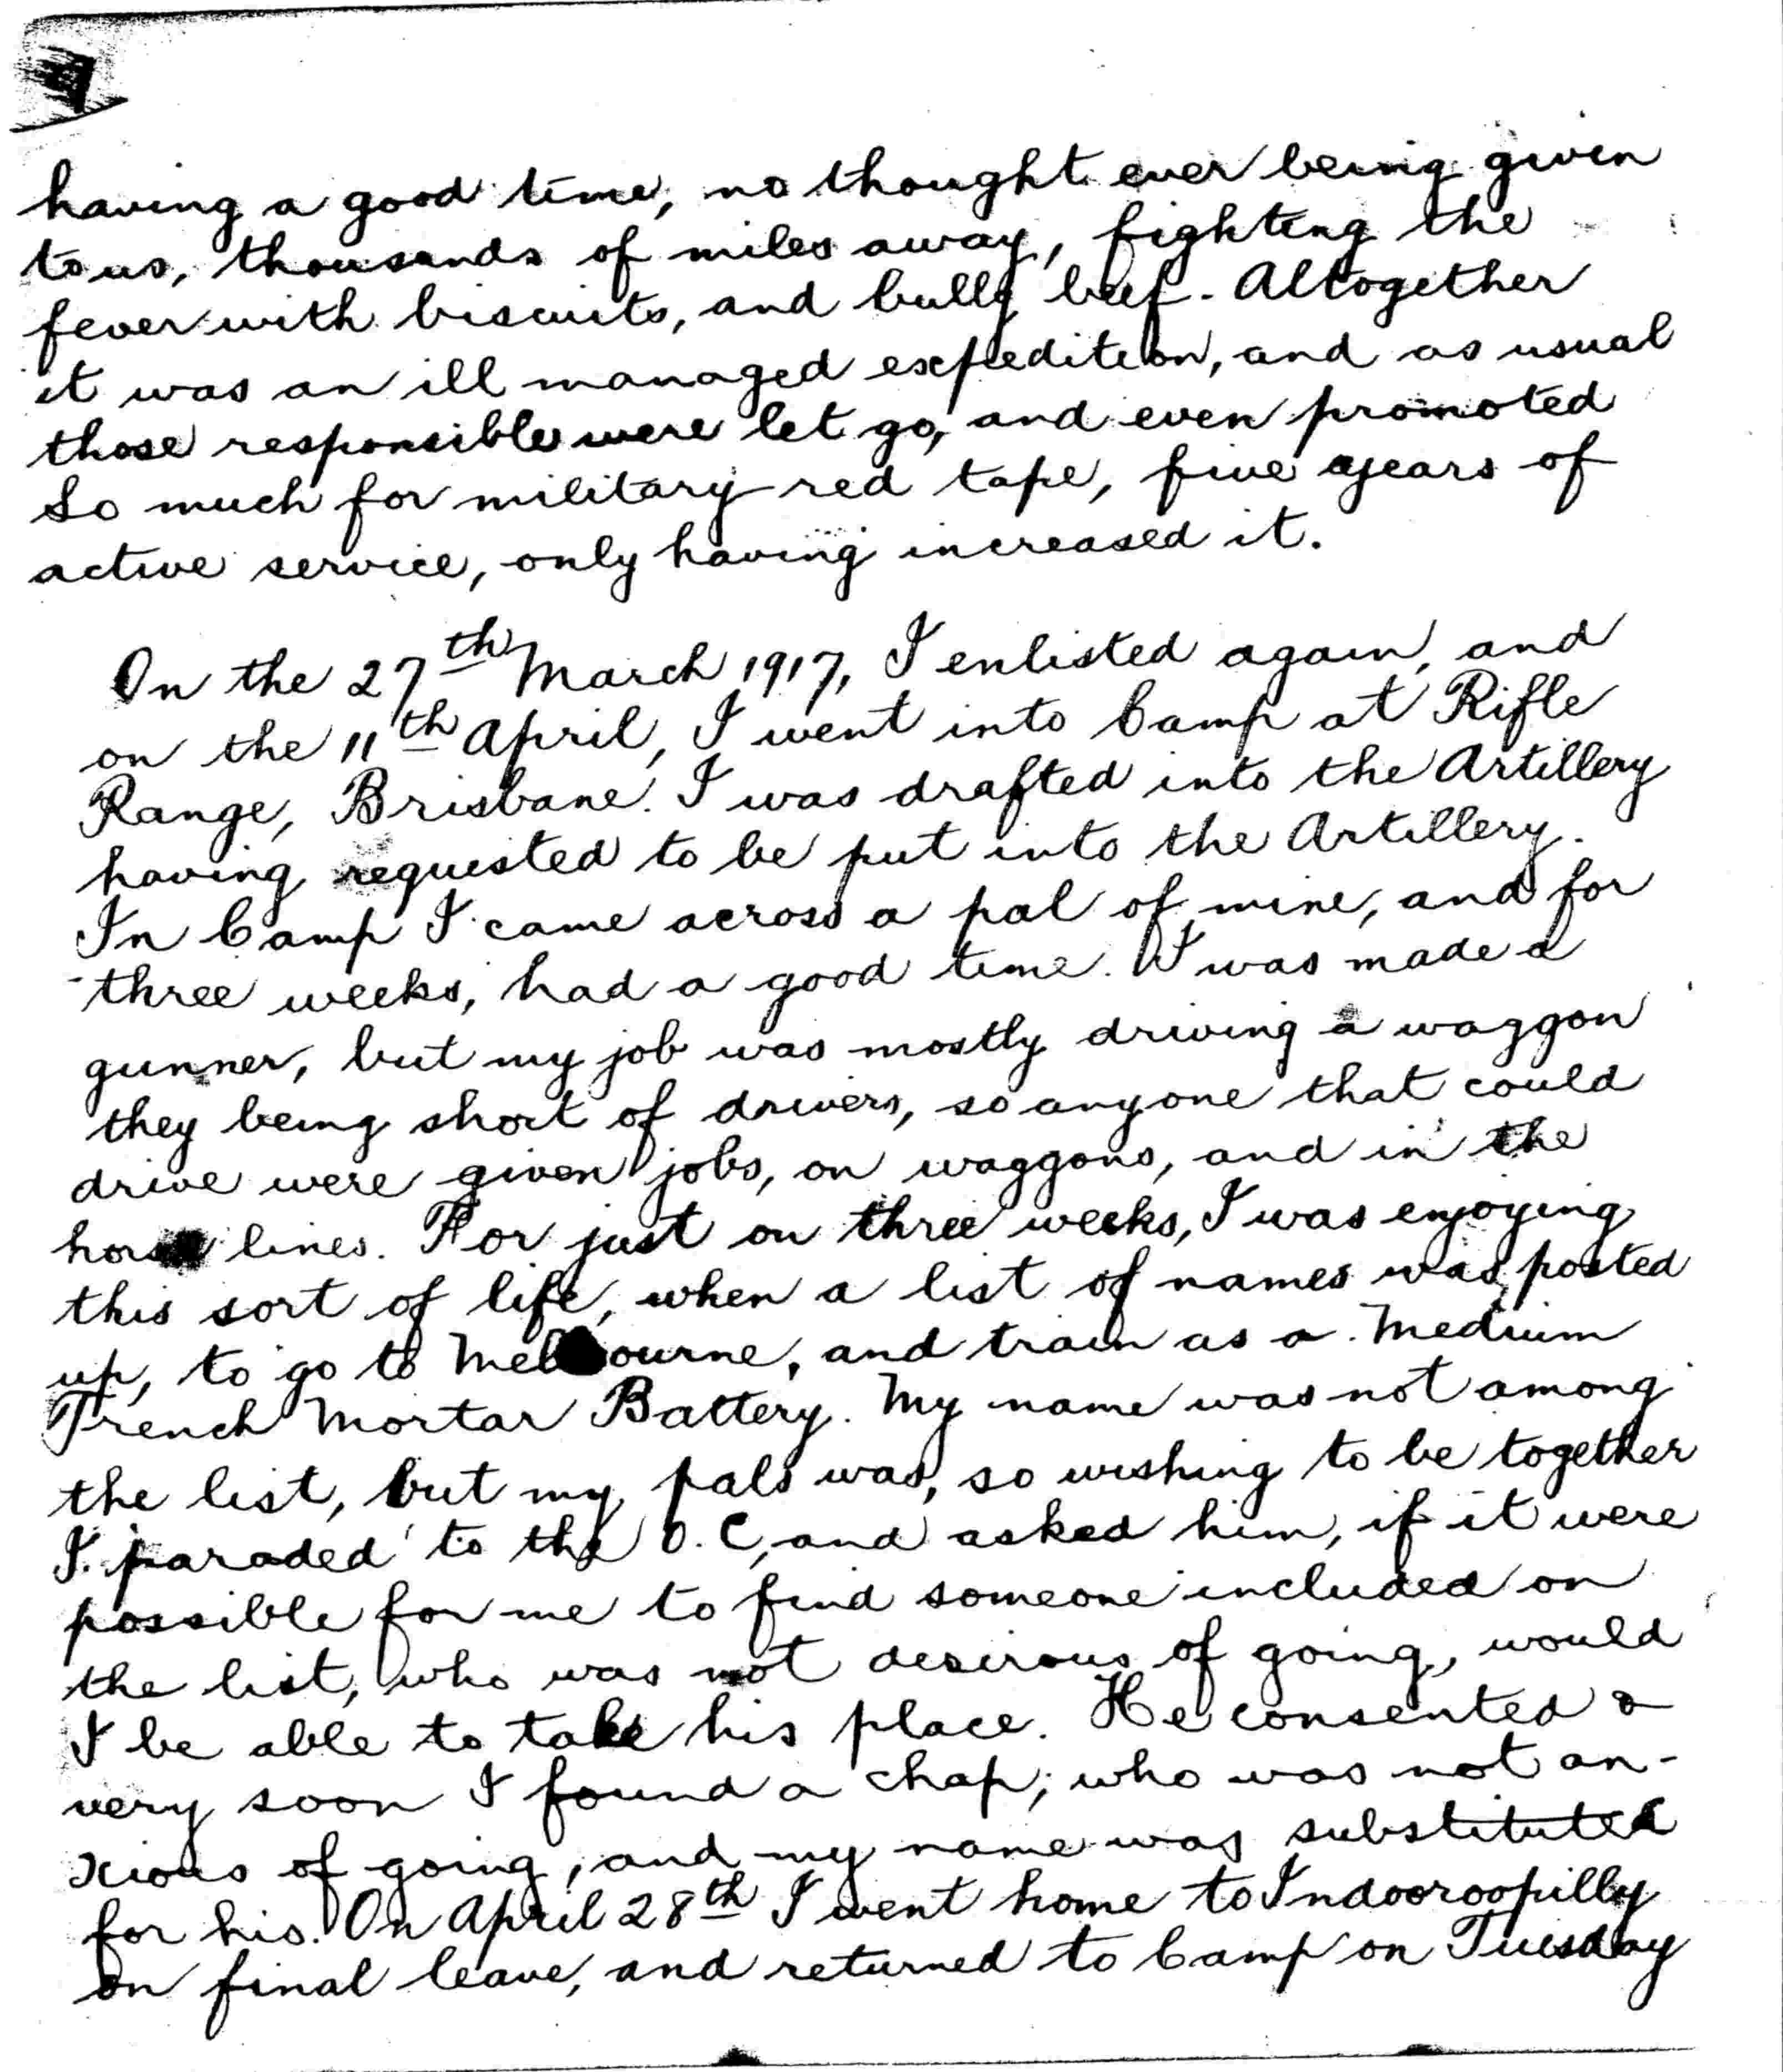 having a good time, no thought ever being given
to us, thousands of miles away, fighting the
fever with biscuits, and bully beef. Altogether
it was an ill managed expedition, and as usual
those responsible were let go, and even promoted
So much for military red tape, five years of
active service, only having increased it.
On the 27th March 1917, I enlisted again, and
on the 11th April, I went into Camp at Rifle
Range, Brisbane. I was drafted into the Artillery
having requested to be put into the Artillery.
In Camp I came across a pal of mine, and for
three weeks, had a good time. I was made a
gunner, but my job was mostly driving a waggon
they being short of drivers, so anyone that could
drive were given jobs, on waggons, and in the
horse lines. For just on three weeks, I was enjoying
this sort of life, when a list of names was posted
up, to go to Melbourne, and train as a Medium
Trench Mortar Battery. My name was not among
the list, but my pals was, so wishing to be together
I paraded to the O.C, and asked him, if it were
possible for me to find someone included on
the list, who was not desirous of going, would
I be able to take his place. He consented &
very soon I found a chap, who was not an-
xious of going, and my name was substituted
for his. On April 28th I went home to Indooroopilly
on final leave, and returned to Camp on Tuesday